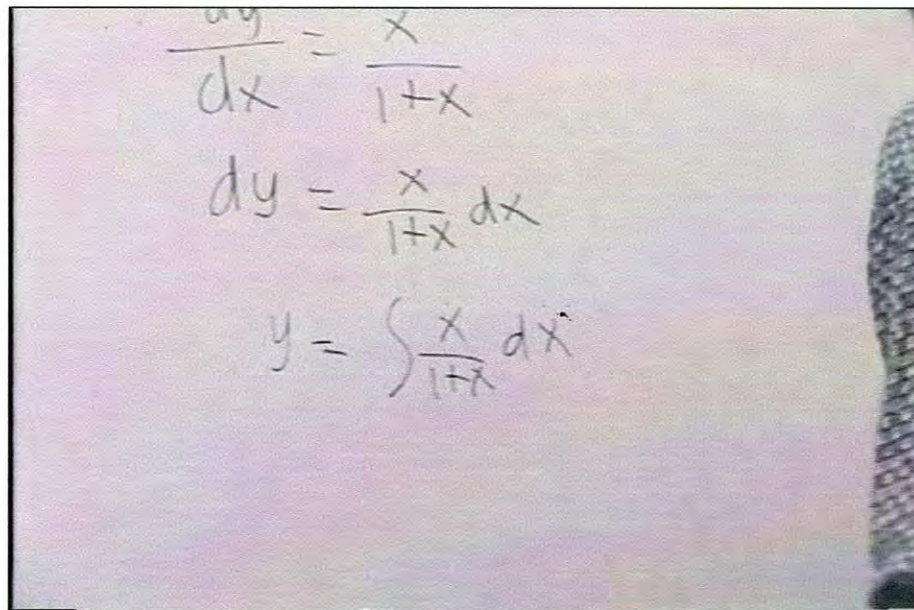 dy/dx = x/1+x
dy = x/1+x dx
y = ∫ x/1+x dx